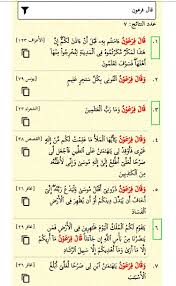 قال فرعون
عدد النتائج: ٧
١. قَالَ فِرْعَوْنُ ءَامَنتُم بِهِۦ قَبْلَ أَنْ ءَاذَنَ لَكُمْ إِنَّ [الأعراف ١٢٣]
هَٰذَا لَمَكْرٌ مَّكَرْتُمُوهُ فِي الْمَدِينَةِ لِتُخْرِجُوا مِنْهَا
أَهْلَهَا فَسَوْفَ تَعْلَمُونَ
٢. وَقَالَ فِرْعَوْنُ ائْتُونِي بِكُلِّ سَٰحِرٍ عَلِيمٍ [يونس ٧٩]
٣. قَالَ فِرْعَوْنُ وَمَا رَبُّ الْعَٰلَمِينَ [الشعراء ٢٣]
٤. وَقَالَ فِرْعَوْنُ يَٰأَيُّهَا الْمَلَأُ مَا عَلِمْتُ لَكُم مِّنْ إِلَٰهٍ [القصص ٣٨]
غَيْرِي فَأَوْقِدْ لِي يَٰهَٰمَٰنُ عَلَى الطِّينِ فَاجْعَل لِّي
صَرْحًا لَّعَلِّي أَطَّلِعُ إِلَىٰ إِلَٰهِ مُوسَىٰ وَإِنِّي لَأَظُنُّهُۥ
مِنَ الْكَٰذِبِينَ
٥. وَقَالَ فِرْعَوْنُ ذَرُونِي أَقْتُلْ مُوسَىٰ وَلْيَدْعُ رَبَّهُۥ إِنِّي [غافر ٢٦]
أَخَافُ أَن يُبَدِّلَ دِينَكُمْ أَوْ أَن يُظْهِرَ فِي الْأَرْضِ
الْفَسَادَ
٦. يَٰقَوْمِ لَكُمُ الْمُلْكُ الْيَوْمَ ظَٰهِرِينَ فِي الْأَرْضِ فَمَن [غافر ٢٩]
يَنصُرُنَا مِن بَأْسِ اللَّهِ إِن جَاءَنَا قَالَ فِرْعَوْنُ مَا أُرِيكُمْ
٧. وَقَالَ فِرْعَوْنُ يَٰهَٰمَٰنُ ابْنِ لِي صَرْحًا لَّعَلِّي أَبْلُغُ [غافر ٣٦]